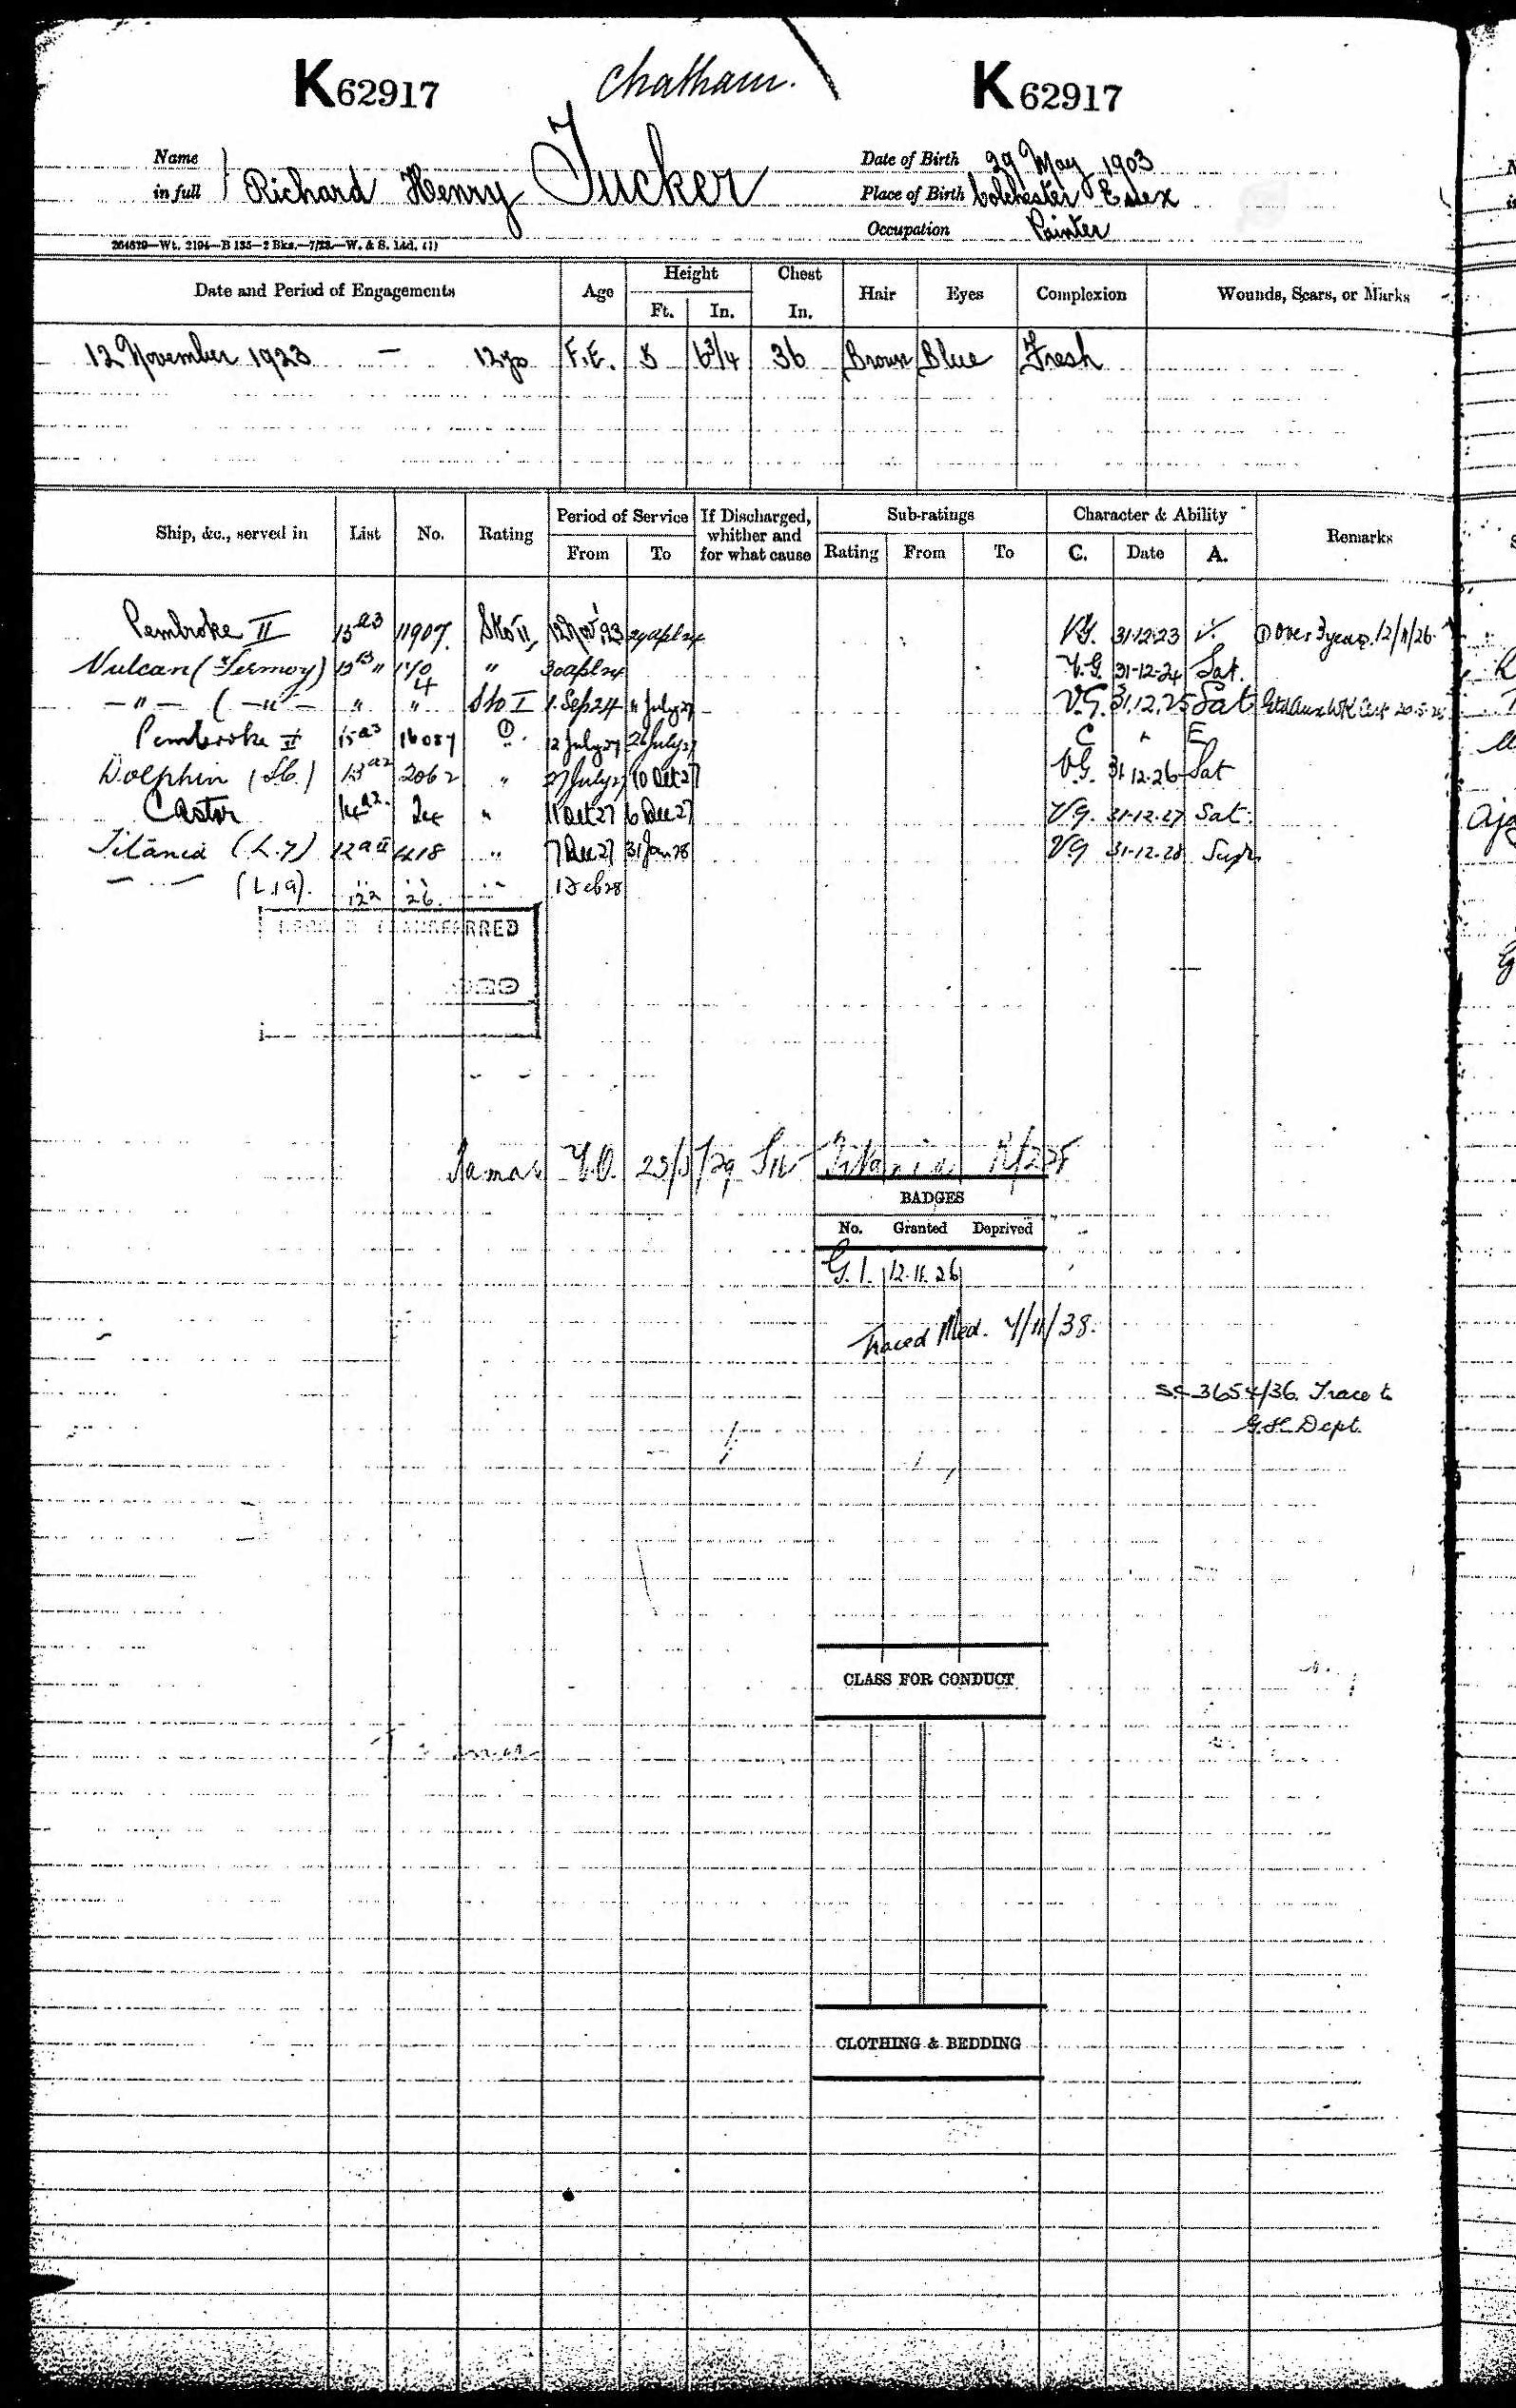 K62917 Chatham. K62917
Name in full Richard Henry Tucker
Date of Birth 29 May 1903
Place of Birth Colchester Essex
Occupation Painter
264629—Wt. 2194—B 135—2 Bks.—7/23.—W. & S. Ltd. (1)
Date and Period of Engagements Age Height Ft. In. Chest In. Hair Eyes Complexion Wounds, Scars, or Marks
12 November 1923 — 12 yrs F.E. 5 6 3/4 36 Brown Blue Fresh
Ship, &c., served in List No. Rating Period of Service From To If Discharged, whither and for what cause Sub-ratings Rating From To Character & Ability C. Date A. Remarks
Pembroke II 15a3 11907. Sto II, 12 Nov 23 29 Apl 24 V.G. 31.12.23 ① Over 3 years. 12/11/26.
Vulcan (Fermoy) 13 " 170 " 30 Apl 24 V.G. 31.12.24 Sat.
— " — ( — " — " " 4 Sto I 1. Sep 24 11 July 27 V.G. 31.12.25 Sat
Pembroke II 15a3 16087 ①. 12 July 27 26 July 27 C " E
Dolphin (Sb.) 13a2 2062 " 27 July 27 10 Oct 27 V.G. 31.12.26 Sat
Castor 14a2. 24 " 11 Oct 27 6 Dec 27 V.G. 31.12.27 Sat.
Titania (L.7) 12aII 418 " 7 Dec 27 31 Jan 28 V.G. 31.12.28 Supr
— " — (L.19). 122 26. " 1 Feb 28
TRANSFERRED
Titania
BADGES
No. Granted Deprived
G. 1. 12.11.26
Traced Med. 4/11/38.
3654/36. Trace to
Dept.
CLASS FOR CONDUCT
CLOTHING & BEDDING